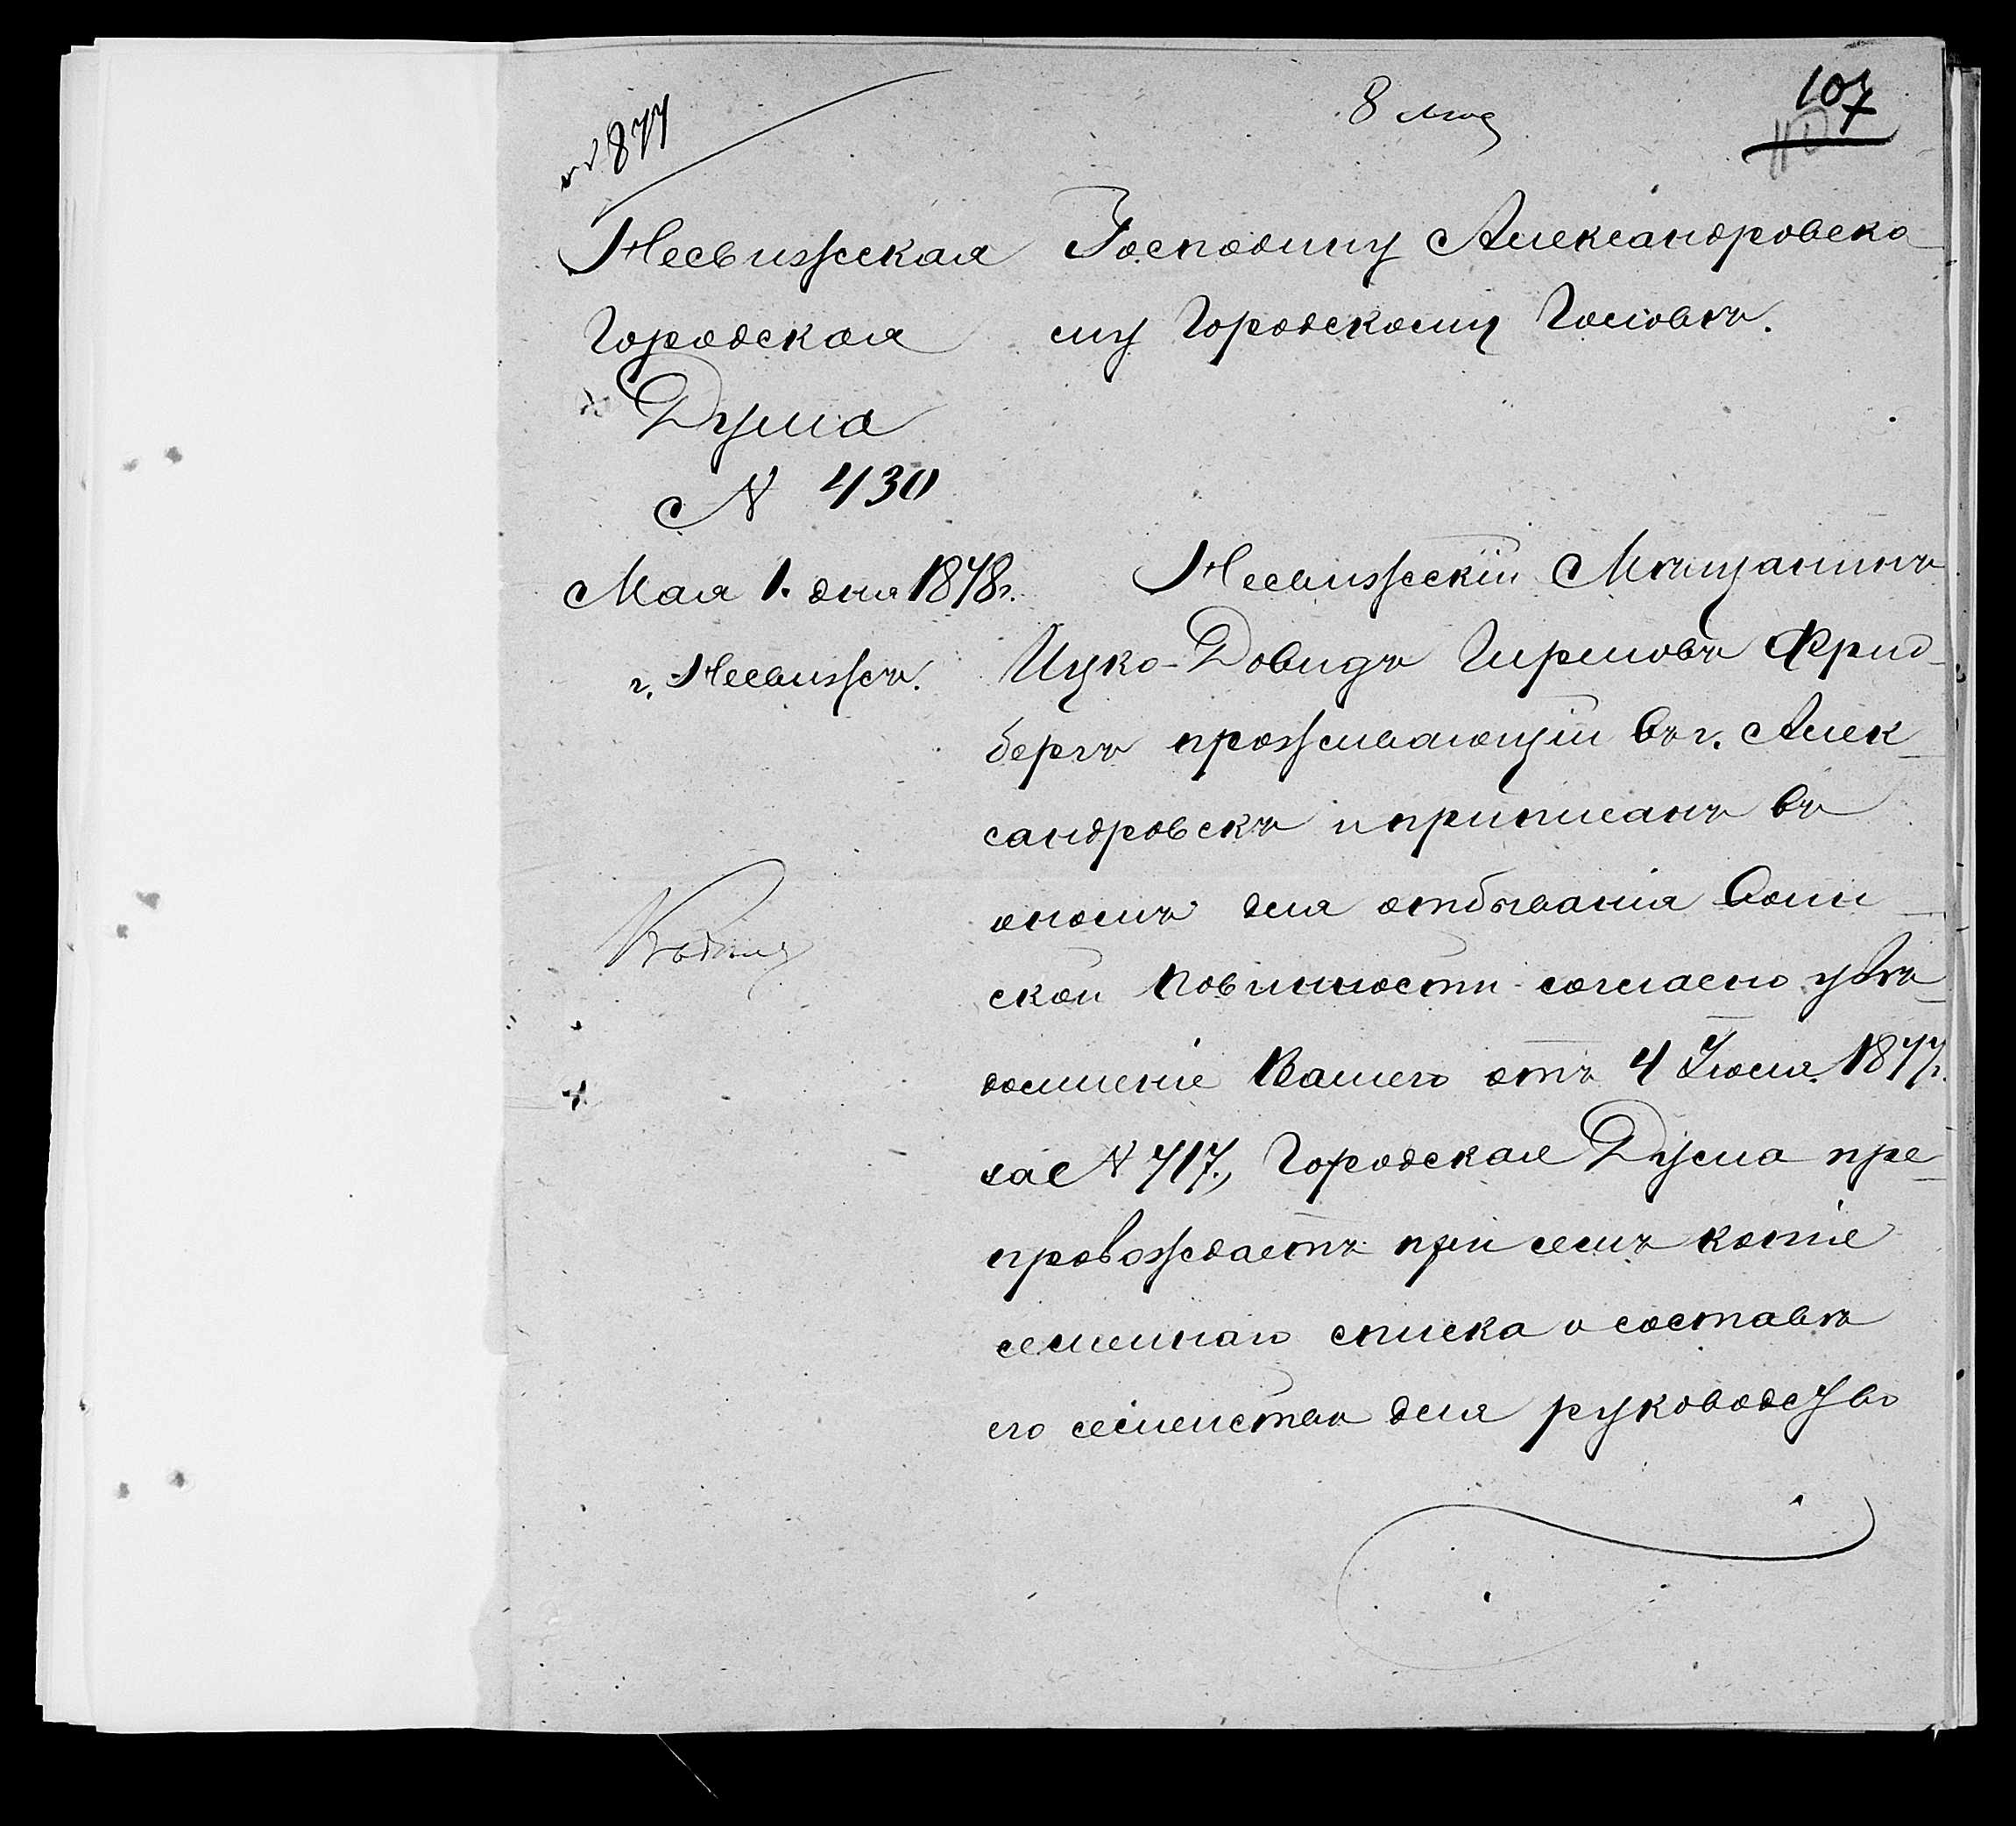 № 877
8 мая
107
110
Несвижская
Городская
Дума
№ 430
Мая 1. дня 1878г.
г. Несвижъ.
Господину Александровско-
му Городскому Головѣ.
Несвижскій Мѣщанинъ
Ицко-Довидъ Гиршовъ Фрид-
бергъ проживающій въ г. Алек-
сандровскѣ и приписанъ въ
ономъ для отбыванія воин-
ской повинности согласно увѣ-
домленіе Вашего отъ 4 Іюля 1877г.
за № 717., Городская Дума пре-
провождаетъ при семъ копіе
семейнаго списка о составѣ
его семейства для руководство